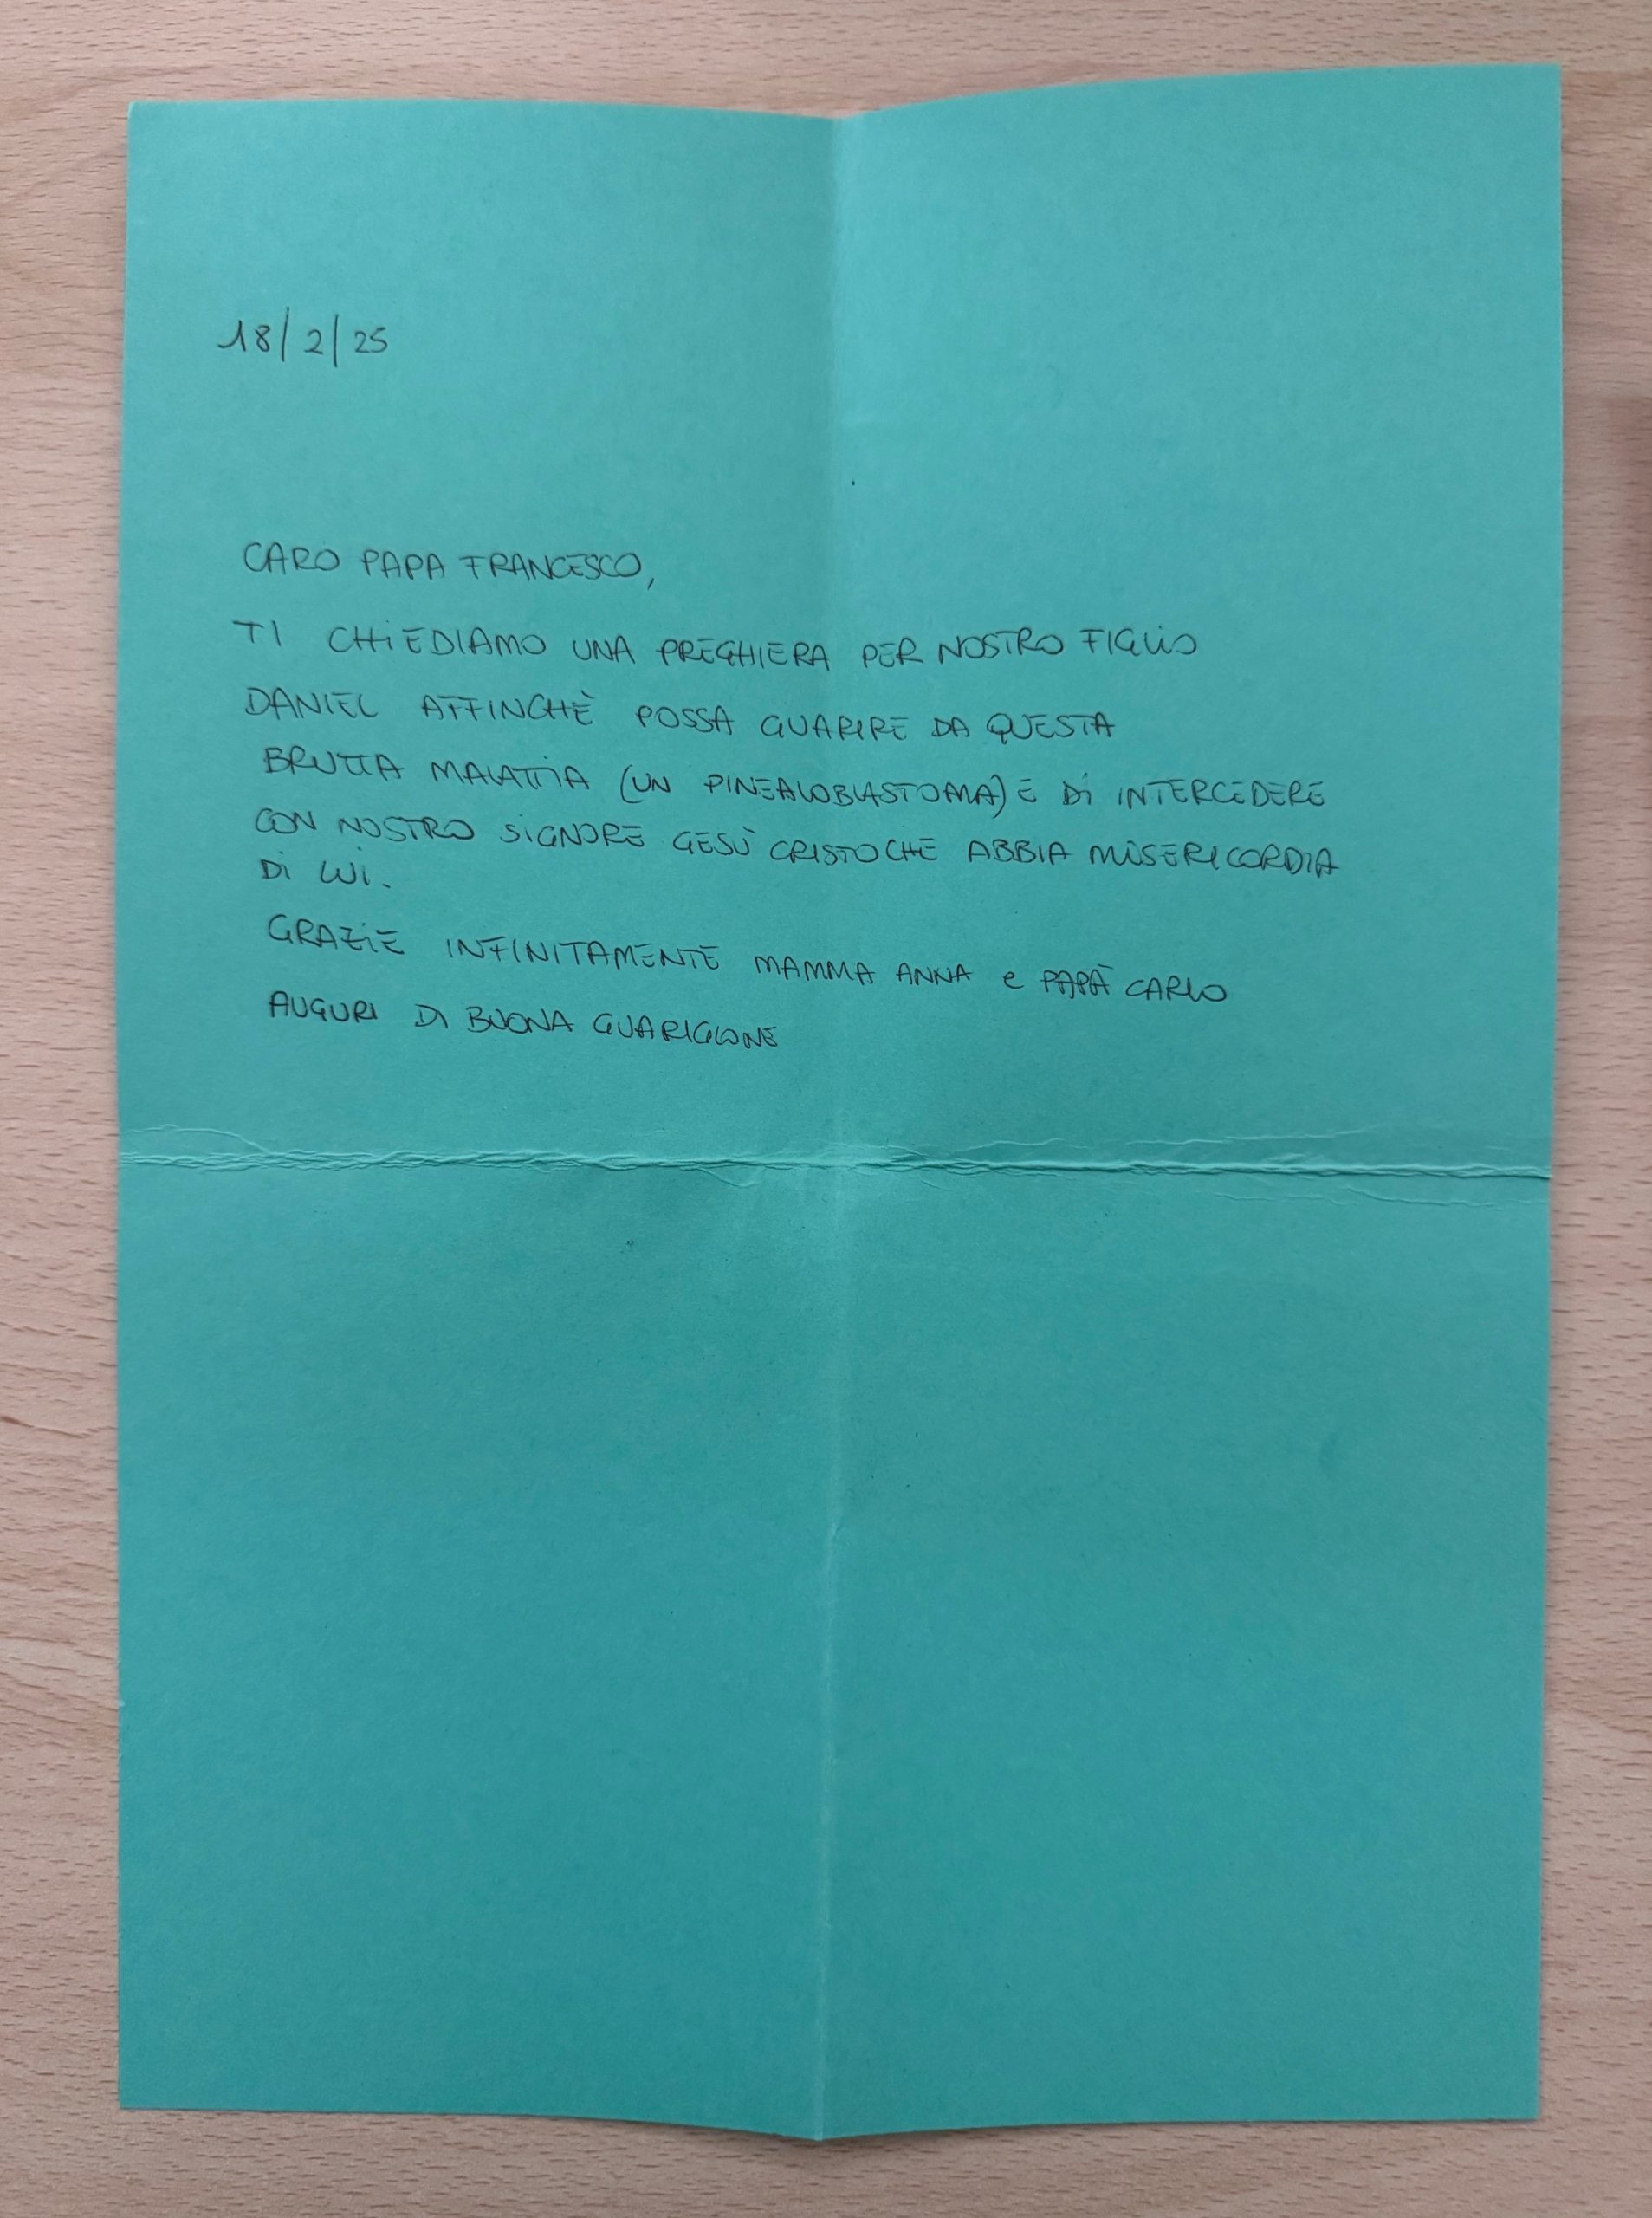 18/2/25
CARO PAPA FRANCESCO,
TI CHIEDIAMO UNA PREGHIERA PER NOSTRO FIGLIO
DANIEL AFFINCHÈ POSSA GUARIRE DA QUESTA
BRUTTA MALATTIA (UN PINEALOBLASTOMA) E DI INTERCEDERE
CON NOSTRO SIGNORE GESÙ CRISTO CHE ABBIA MISERICORDIA
DI LUI.
GRAZIE INFINITAMENTE MAMMA ANNA e PAPÀ CARLO
AUGURI DI BUONA GUARIGIONE